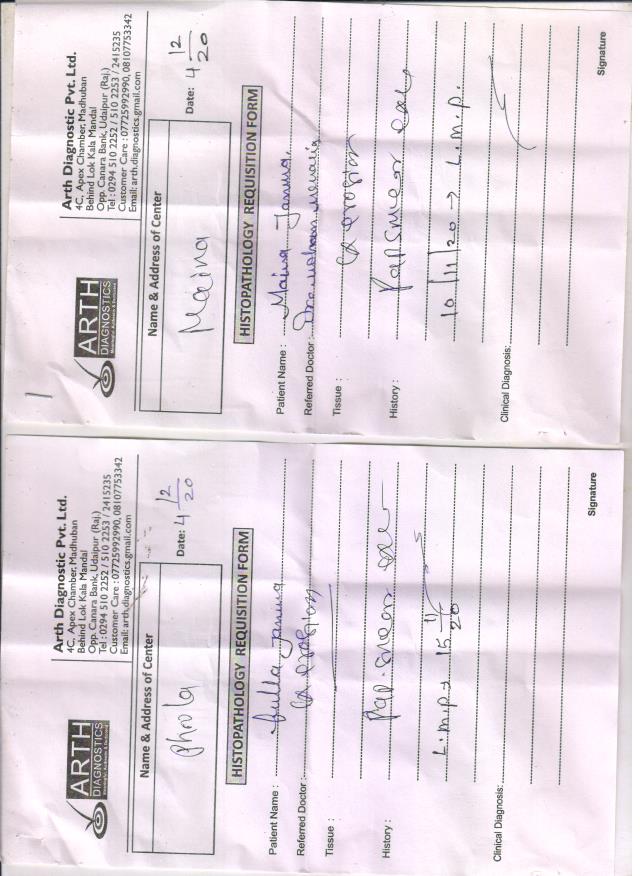 ARTH
DIAGNOSTICS
Arth Diagnostic Pvt. Ltd.
4C, Apex Chamber, Madhuban
Behind Lok Kala Mandal
Opp. Canara Bank, Udaipur (Raj.)
Tel : 0294 510 2252 / 510 2253 / 2415235
Customer Care : 07725992990, 08107753342
Email: arth.diagnostics.gmail.com
Name & Address of Center
Phola
Date: 4 12/20
HISTOPATHOLOGY REQUISITION FORM
Patient Name :
Referred Doctor : Cx erosion
Tissue :
Pap. smear
History :
L.M.P → 15 11/20
Clinical Diagnosis:
Signature
1
ARTH
DIAGNOSTICS
Arth Diagnostic Pvt. Ltd.
4C, Apex Chamber, Madhuban
Behind Lok Kala Mandal
Opp. Canara Bank, Udaipur (Raj.)
Tel : 0294 510 2252 / 510 2253 / 2415235
Customer Care : 07725992990, 08107753342
Email: arth.diagnostics.gmail.com
Name & Address of Center
Maina
Date: 4 12/20
HISTOPATHOLOGY REQUISITION FORM
Patient Name : Maina
Referred Doctor :
Tissue : Cx erosion
History : Papsmear
10/11/20 → L.M.P.
Clinical Diagnosis:
Signature